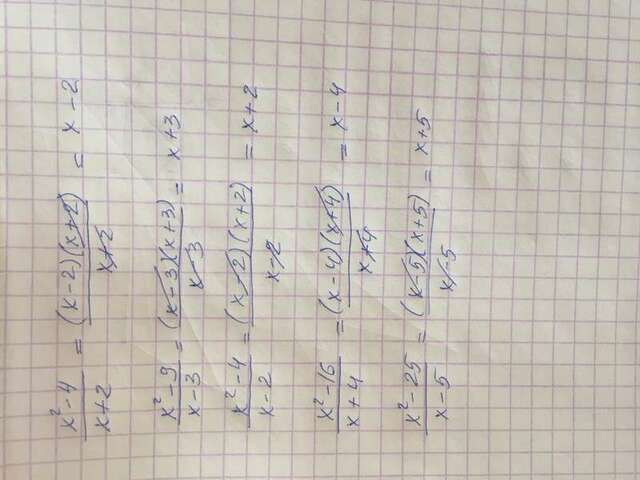 x²-4/x+2 = (x-2)(x+2)/x+2 = x-2
x²-9/x-3 = (x-3)(x+3)/x-3 = x+3
x²-4/x-2 = (x-2)(x+2)/x-2 = x+2
x²-16/x+4 = (x-4)(x+4)/x+4 = x-4
x²-25/x-5 = (x-5)(x+5)/x-5 = x+5